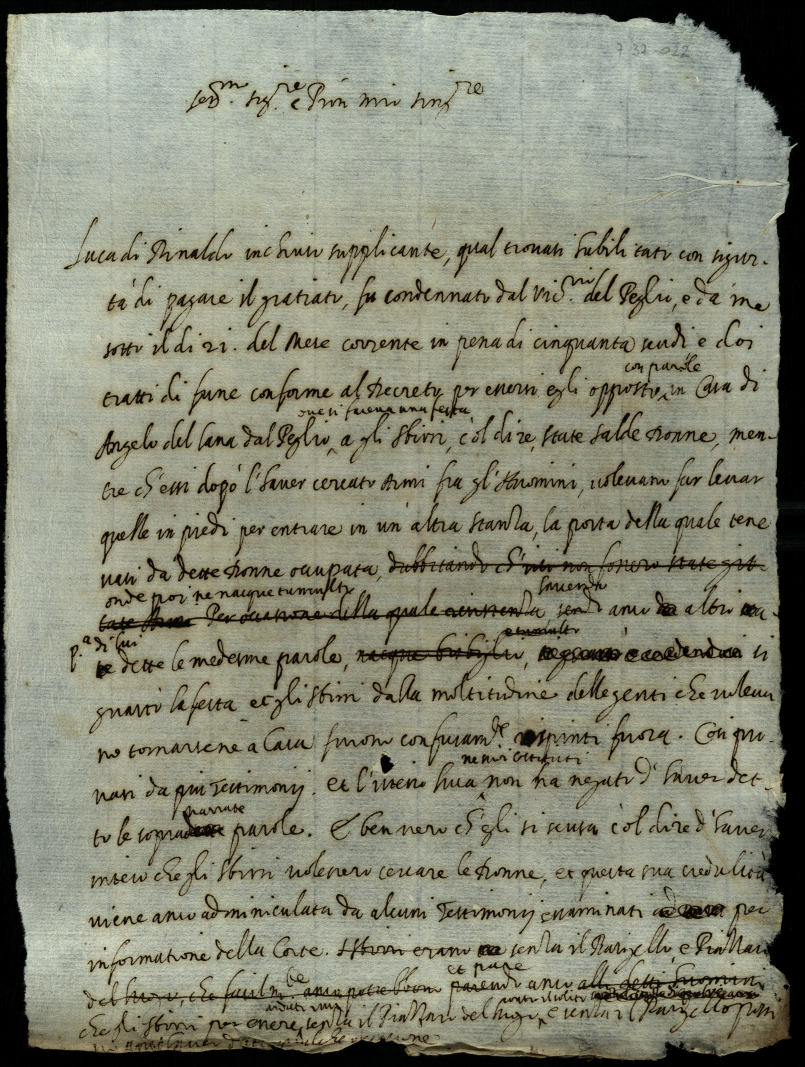 7 32 012
Ser.mo Sig.re e Pron mio Sing.re
Luca di Rinaldo inchinto supplicante, qual trovasi habilitato con sigur-
tà di pagare il gratiato, fu condennato dal Vic.rio del Peglio, e da me
sotto il di 21. del Mese corrente in pena di cinquanta scudi e doi
tratti di fune conforme al Decreto per essersi egli opposto con parole in Casa di
Angelo del Lana dal Peglio ove si faceva una festa a gli Sbirri, col dire, state salde Donne, men-
tre ch'essi dopò l'haver cercato Armi fra gl'Huomini, volevano far levar
quelle in piedi per entrare in un'altra stanza, la porta della quale tene
vasi da dette Donne occupata, dubbitando ch'ivi non fossero state git
onde poi ne nacque tumulto havendo
tate Armi Per occasione della quale anco altri
p.a di lui
dette le medesme parole, nacque bisbiglio, e tumulto si
guastò la festa et gli sbirri dalla moltitudine delle genti che voleva
no tornarsene à Casa furono confusam.te rispinti fuora. Così pro-
vasi da più Testimonij. et l'istesso Luca ne suoi costituti non ha negato d'haver det-
to le sopra narrate parole. È ben vero ch'egli si scusa col dire d'haver
inteso che gli sbirri volessero cercare le Donne, et questa sua credulità
viene anco adminiculata da alcuni Testimonij essaminati per
informatione della Corte. erano senza il Barigello e Piazzaro
del che facilm.te anco potrebbono et pare anco alli detti huomini
che gli sbirri per essere senza il Piazzaro del e senza il Barigello